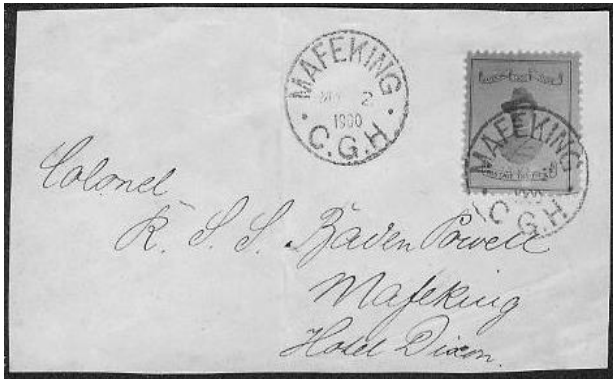 MAFEKING
2
1900
C.G.H
MAFEKING
C.G.H
Colonel
R. S. S. Baden Powell
Mafeking
Hotel Dixon.